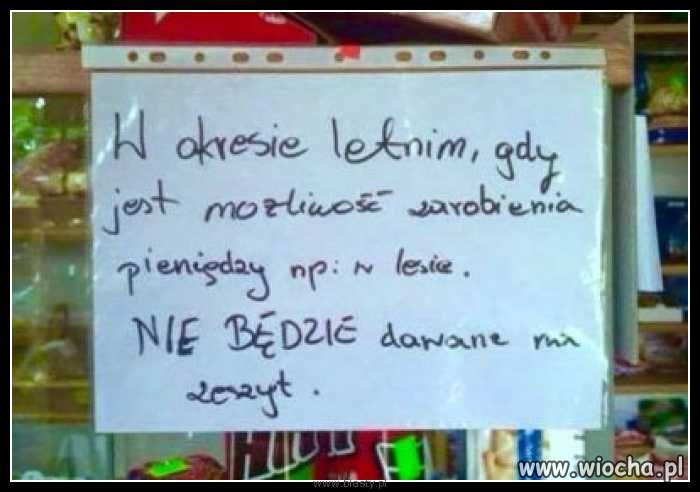 W okresie letnim, gdy
jest możliwość zarobienia
pieniędzy np: w lesie.
NIE BĘDZIE dawane na
zeszyt.
www.wiocha.pl